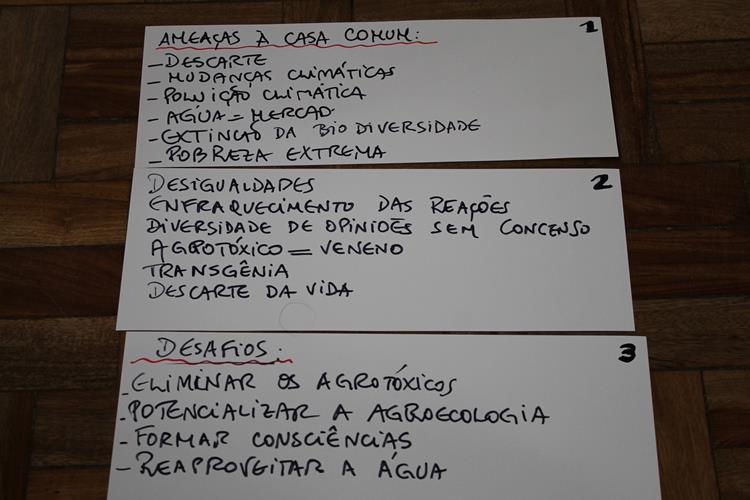 1
AMEAÇAS À CASA COMUM:
- DESCARTE
- MUDANÇAS CLIMÁTICAS
- POLUIÇÃO CLIMÁTICA
- AGUA = MERCADO
- EXTINÇÃO DA BIODIVERSIDADE
- POBREZA EXTREMA
2
DESIGUALDADES
ENFRAQUECIMENTO DAS REAÇÕES
DIVERSIDADE DE OPINIÕES SEM CONCENSO
AGROTÓXICO = VENENO
TRANSGÊNIA
DESCARTE DA VIDA
3
DESAFIOS:
- ELIMINAR OS AGROTÓXICOS
- POTENCIALIZAR A AGROECOLOGIA
- FORMAR CONSCIÊNCIAS
- REAPROVEITAR A ÁGUA